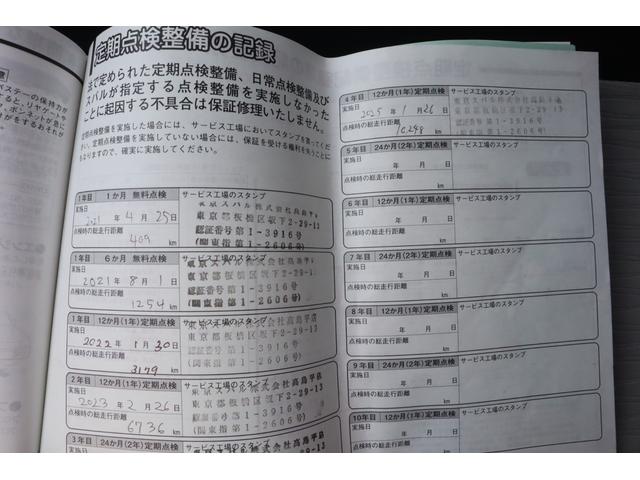 定期点検整備の記録
法で定められた定期点検整備、日常点検整備及び
スバルが指定する点検整備を実施しなかった
ことに起因する不具合は保証修理いたしません。
定期点検整備を実施した場合には、サービス工場においてスタンプを貰ってくだ
さい。定期点検整備を実施していない場合には、保証を受ける権利を失うことに
もなりますので、確実に実施してください。
1年目 1か月 無料点検 サービス工場のスタンプ
実施日
2021年 4月 25日
点検時の総走行距離
409 km
東京スバル株式会社高島平店
東京都板橋区坂下2-29-13
認証番号第1-3916号
(関東指第1-2606号)
1年目 6か月 無料点検 サービス工場のスタンプ
実施日
2021年 8月 1日
点検時の総走行距離
1254 km
東京スバル株式会社高島平店
東京都板橋区坂下2-29-13
認証番号第1-3916号
(関東指第1-2606号)
1年目 12か月(1年)定期点検 サービス工場のスタンプ
実施日
2022年 1月 30日
点検時の総走行距離
3179 km
東京スバル株式会社高島平店
東京都板橋区坂下2-29-13
認証番号第1-3916号
(関東指第1-2606号)
2年目 12か月(1年)定期点検 サービス工場のスタンプ
実施日
2023年 2月 26日
点検時の総走行距離
6736 km
東京スバル株式会社高島平店
東京都板橋区坂下2-29-13
認証番号第1-3916号
(関東指第1-2606号)
3年目 24か月(2年)定期点検 サービス工場のスタンプ
4年目 12か月(1年)定期点検 サービス工場のスタンプ
実施日
2025年 1月 26日
点検時の総走行距離
10,248 km
東京スバル株式会社高島平店
東京都板橋区坂下2-29-13
認証番号第1-3916号
(関東指第1-2606号)
5年目 24か月(2年)定期点検 サービス工場のスタンプ
実施日
年 月 日
点検時の総走行距離
km
6年目 12か月(1年)定期点検 サービス工場のスタンプ
実施日
年 月 日
点検時の総走行距離
km
7年目 24か月(2年)定期点検 サービス工場のスタンプ
実施日
年 月 日
点検時の総走行距離
km
8年目 12か月(1年)定期点検 サービス工場のスタンプ
実施日
年 月 日
点検時の総走行距離
km
9年目 24か月(2年)定期点検 サービス工場のスタンプ
実施日
年 月 日
点検時の総走行距離
km
10年目 12か月(1年)定期点検 サービス工場のスタンプ
実施日
年 月 日
点検時の総走行距離
km